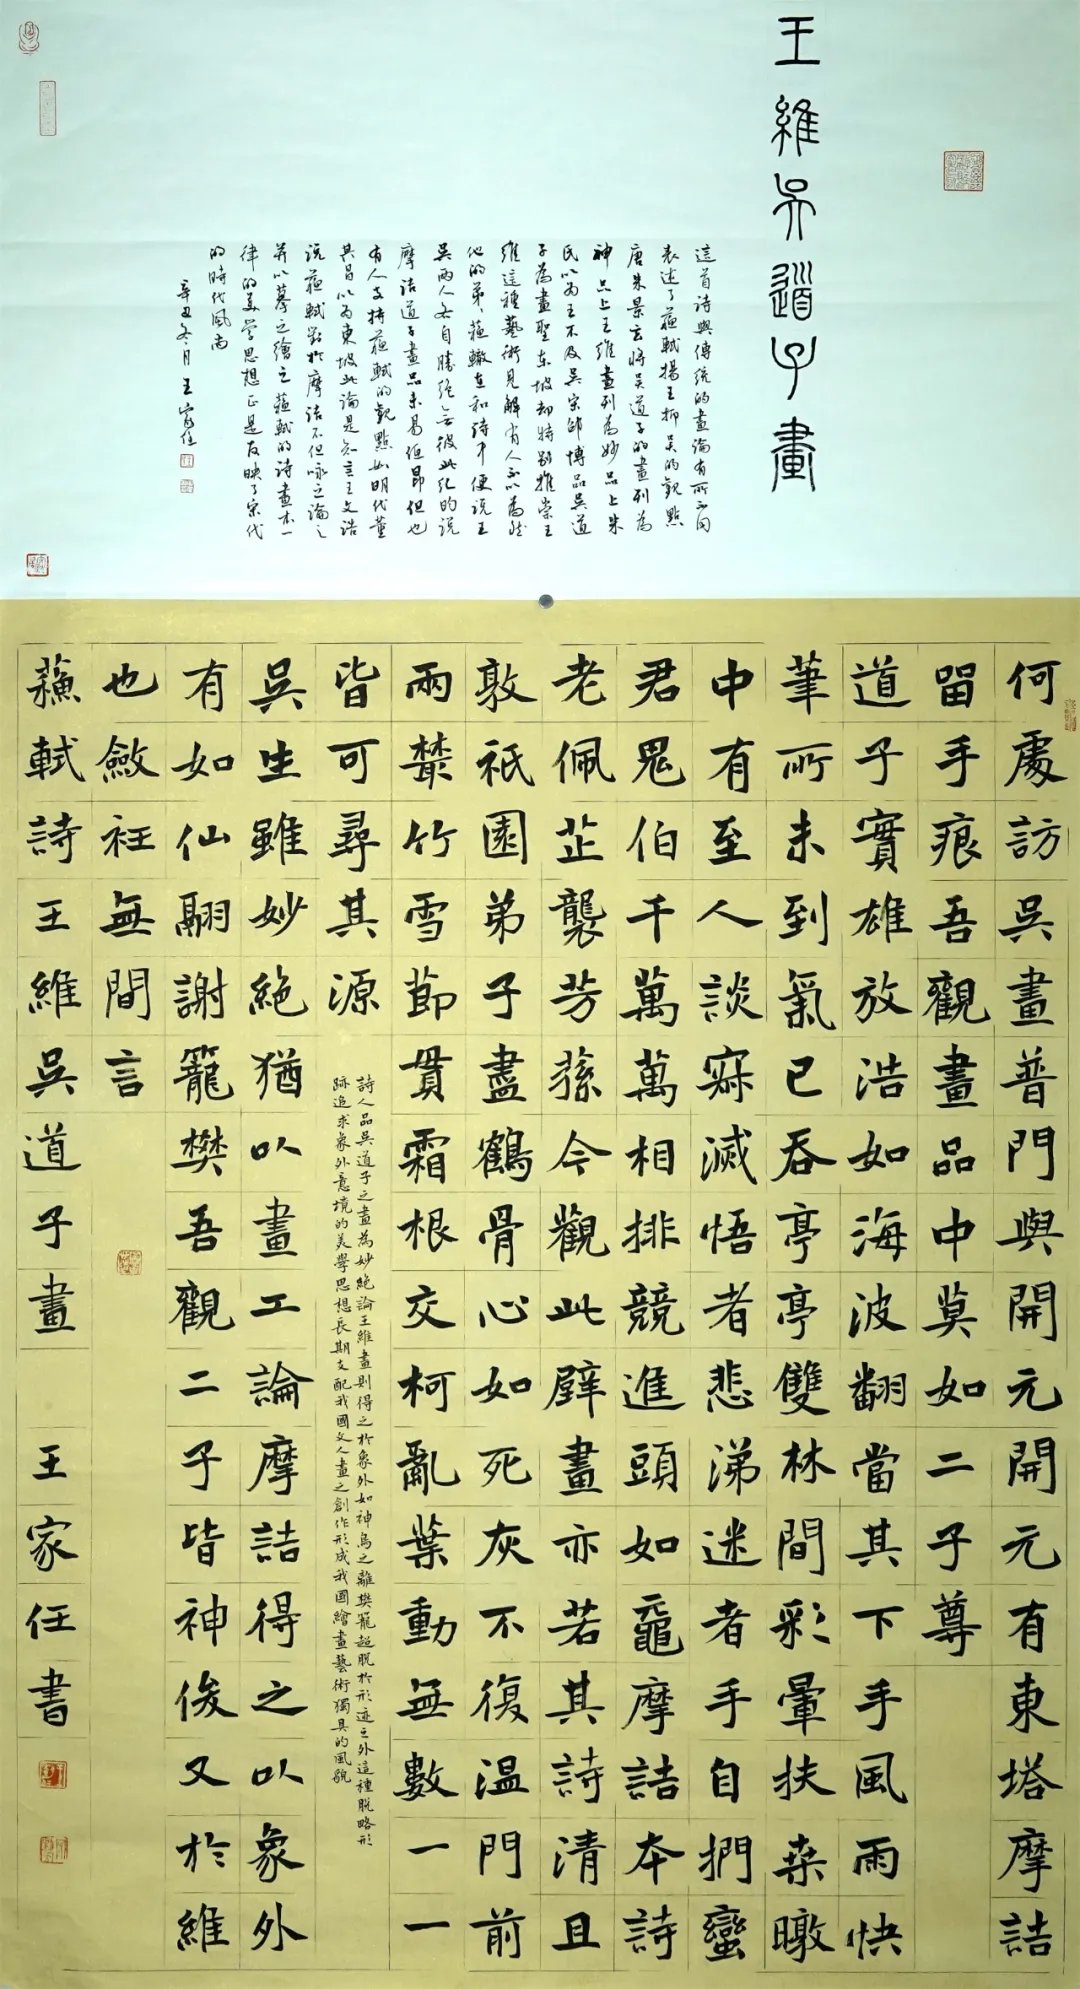 王維吳道子畫
這首詩與傳統的畫論有所不同
表述了蘇軾揚王抑吳的觀點
唐朱景玄將吳道子的畫列為
神品上王維畫列為妙品上朱
民以為王不及吳宋邵博品吳道
子為畫聖東坡却特別推崇王
維這種藝術見解有人不以為然
他的弟蘇轍在和詩中便說王
吳兩人各自勝絕無彼此紀昀說
摩詰道子畫品未易低昂但也
有人支持蘇軾的觀點如明代董
其昌以為東坡此論是知言王文誥
說蘇軾對於摩詰不但咏之論之
并以摹之繪之蘇軾的詩畫本一
律的美學思想正是反映了宋代
的時代風尚
辛丑冬月王家任
何處訪吳畫普門與開元開元有東塔摩詰
留手痕吾觀畫品中莫如二子尊
道子實雄放浩如海波翻當其下手風雨快
筆所未到氣已吞亭亭雙林間彩暈扶桑暾
中有至人談寂滅悟者悲涕迷者手自捫蠻
君鬼伯千萬萬相排競進頭如黿摩詰本詩
老佩芷襲芳蓀今觀此壁畫亦若其詩清且
敦祇園弟子盡鶴骨心如死灰不復溫門前
兩叢竹雪節貫霜根交柯亂葉動無數一一
皆可尋其源
詩人品吳道子之畫為妙絕論王維畫則得之於象外如神鳥之離樊籠超脫於形迹之外這種脫略形
跡追求象外意境的美學思想長期支配我國文人畫之創作形成我國繪畫藝術獨具的風貌
吳生雖妙絕猶以畫工論摩詰得之以象外
有如仙翮謝籠樊吾觀二子皆神俊又於維
也斂衽無間言
蘇軾詩王維吳道子畫 王家任書